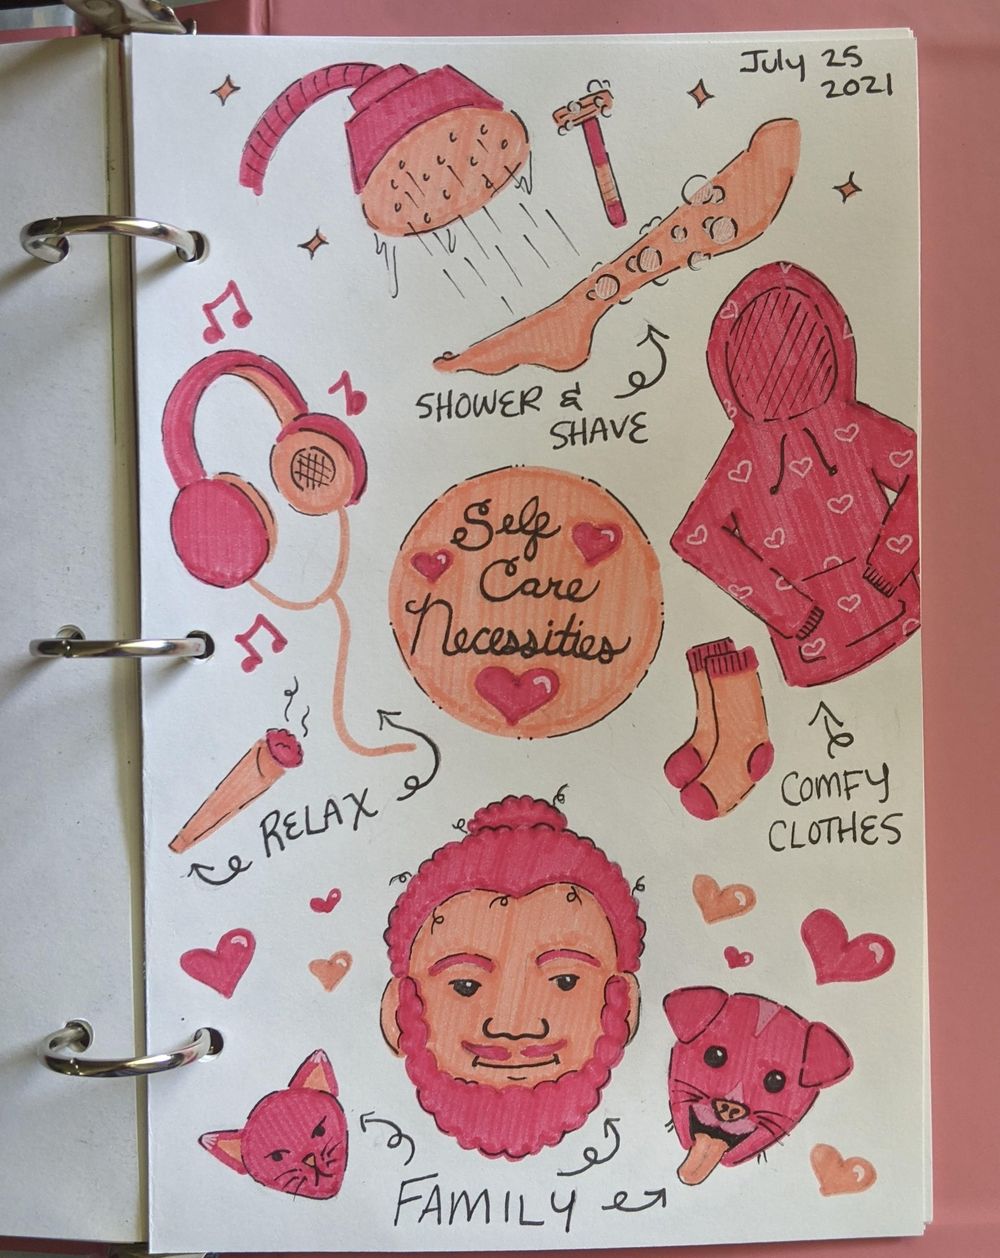 July 25
2021
SHOWER &
SHAVE
Self
Care
Necessities
COMFY
CLOTHES
RELAX
FAMILY